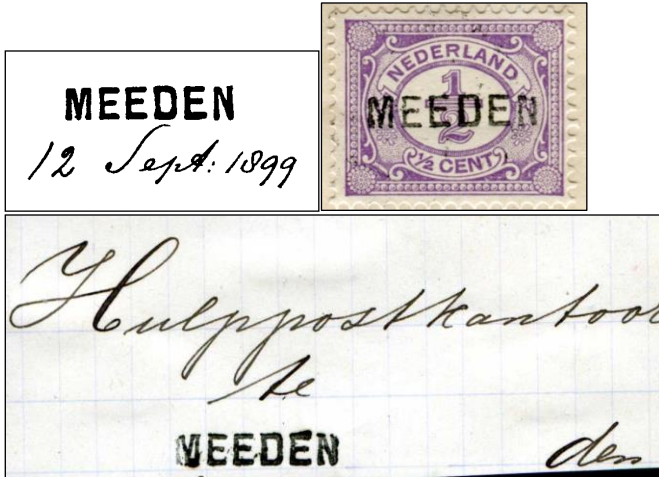 MEEDEN
12 Sept: 1899
NEDERLAND
1/2
MEEDEN
1/2 CENT
Hulppostkantoor
te
MEEDEN den